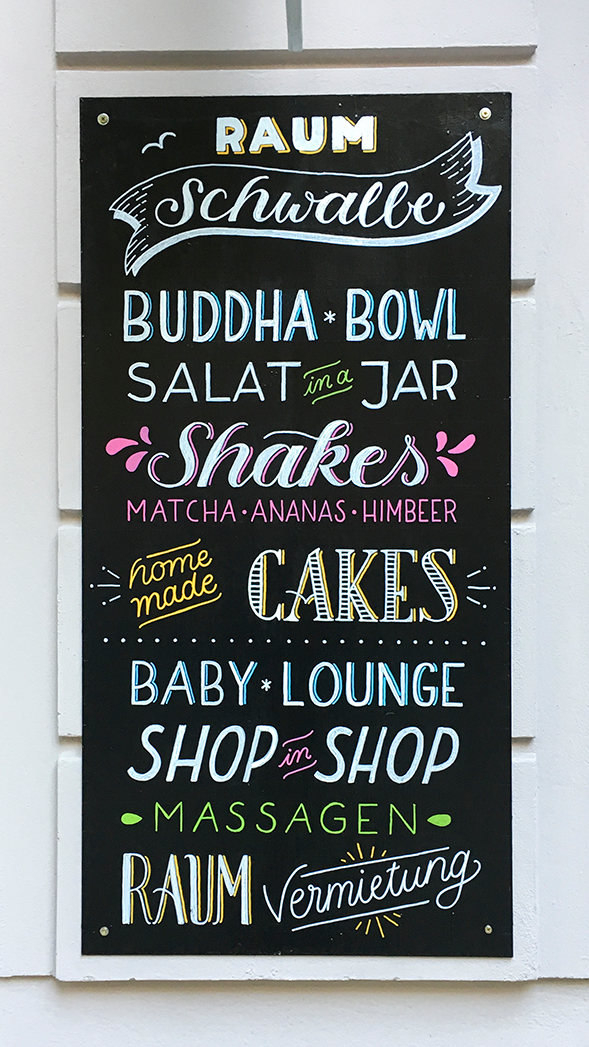 RAUM
Schwalbe
BUDDHA * BOWL
SALAT in a JAR
Shakes
MATCHA · ANANAS · HIMBEER
home made CAKES
BABY * LOUNGE
SHOP in SHOP
MASSAGEN
RAUM Vermietung